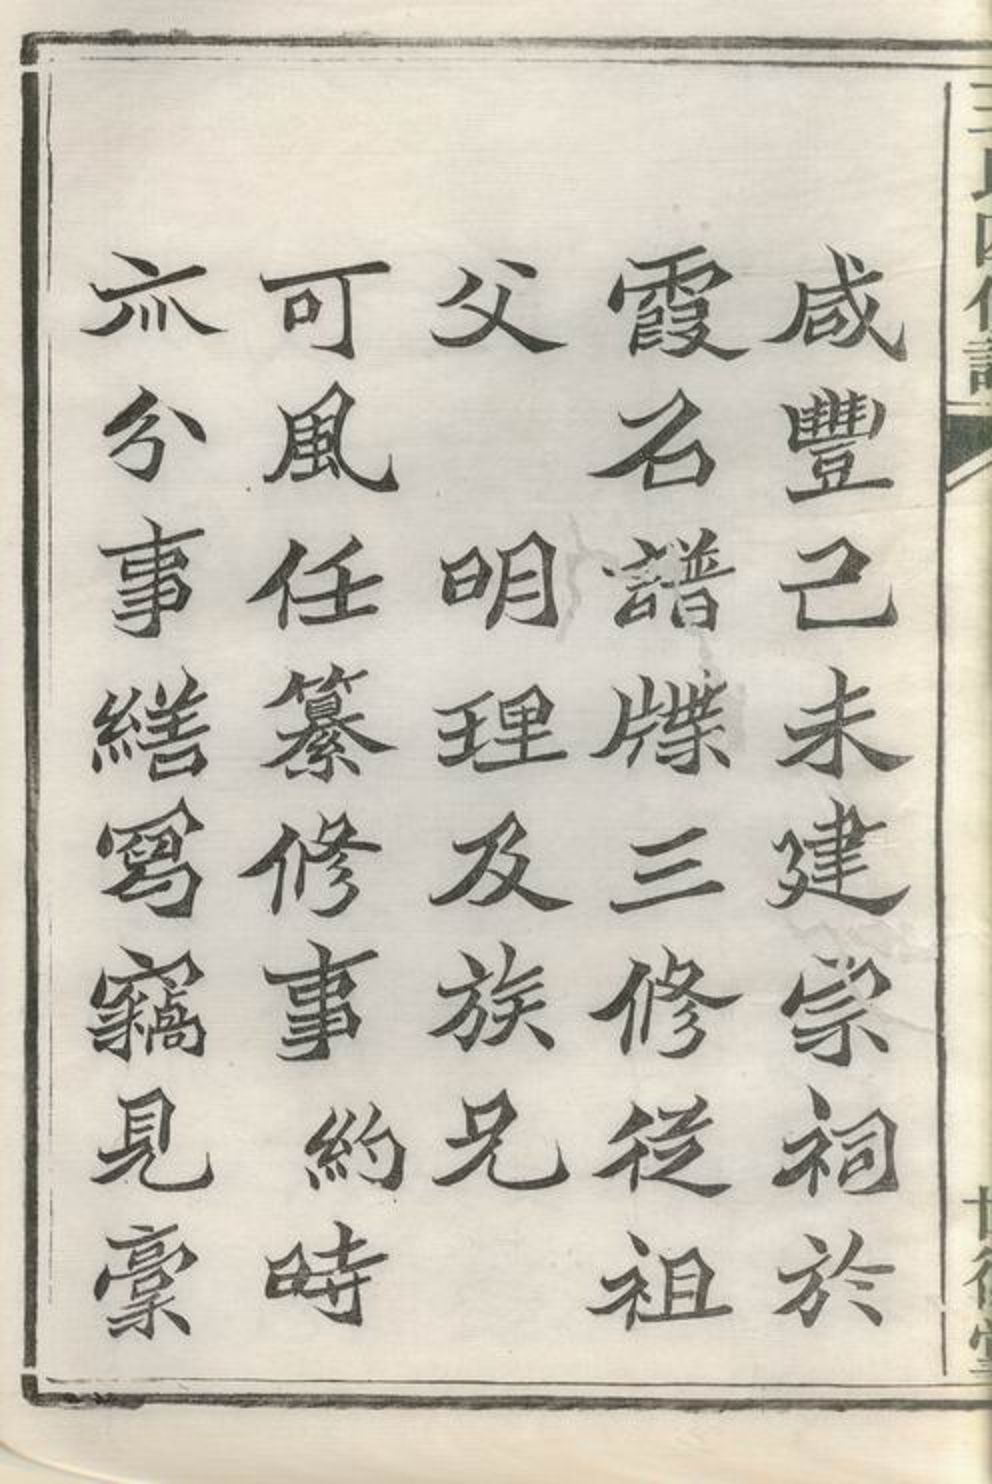 王氏四修譜
世德堂
咸豐己未建宗祠於
霞名譜牒三修從祖
父 明理及族兄
可風任纂修事約時
亦分事繕寫竊見稾